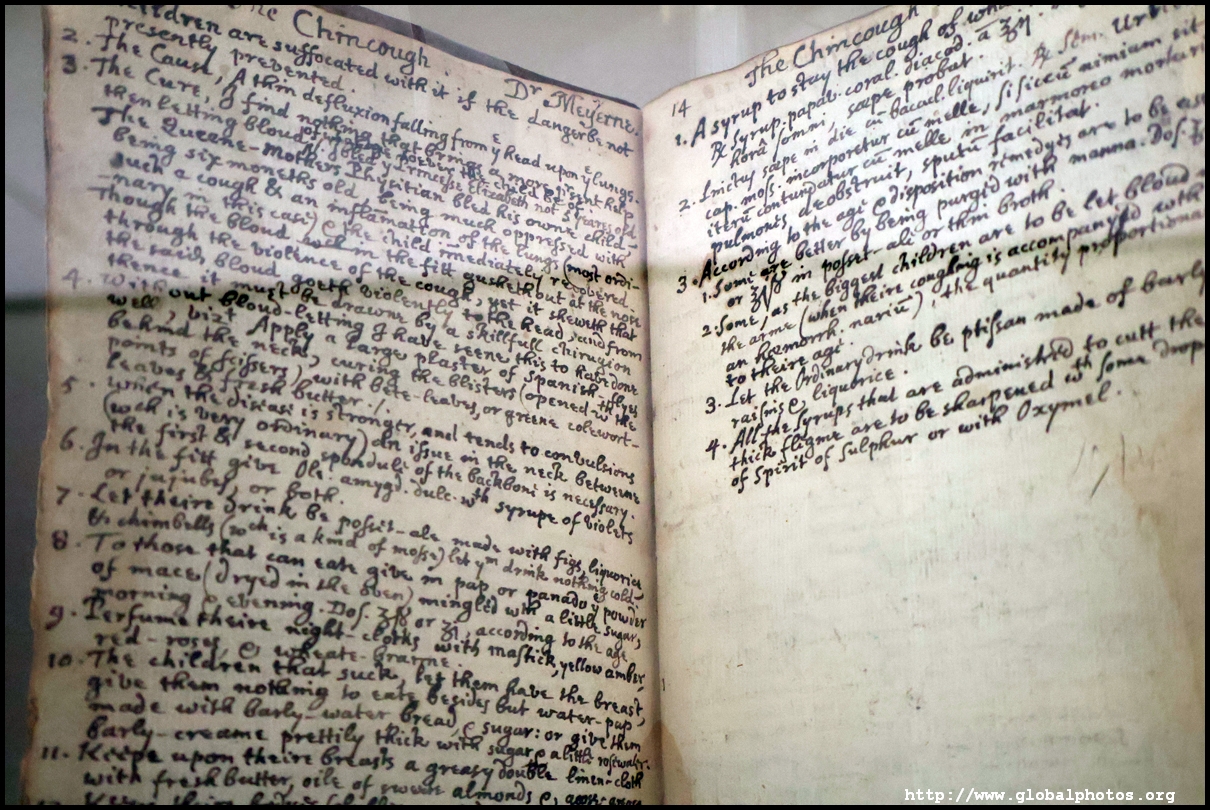 The Chincough.
Dr Meyerne.
children are suffocated with it if the danger be not
presently prevented.
2. The Cause, A thin defluxion falling from y head upon y lungs.
3. The Cure, I find nothing that brings a more present help
then letting bloud
Elizabeth not 5 years old
The Queene-Mothers Physitian bled his owne child
being six moneths old, being much oppressed with
such a cough & an inflamation of the lungs (most ordi-
nary in this case) & the child immediately recovered.
Though the bloud wch in the fitt gusheth out at the nose
through the violence of the cough, yet it sheweth that
the said bloud goeth violently to the head, and from
thence it must be drawne by a skillfull chirurgion
4. without bloud-letting I have seene this to habe done
well, vizt Apply a large plaster of Spanish-flyes
behind the neck, curing the blisters (opened wth the
points of scissers) with bete-leaves, or greene colewort-
leaves & fresh butter /.
5. when the diseas is stronger, and tends to convulsions
(wch is very ordinary) An issue in the neck betweene
the first & second sponduli of the backbone is necessary.
6. In the fitt give Ole. amygd. dulc. wth syrupe of violets
or jujubes, or both.
7. Let theire drink be posset-ale made with figs, liquorice,
& chimbells (wch is a kind of mosse) let ym drink nothing cold.
8. To those that can eate give in pap or panado y powder
of mace (dryed in the oven) mingled wth a little sugar,
morning & evening. Dos. ʒſs or ʒj, according to the age.
9. Perfume theire night-cloths with mastick, yellow amber,
red-roses, & wheate-branne.
10. The children that suck, let them have the breast,
give them nothing to eate besides but water-pap
made with barly-water bread, & sugar: or give them
barly-creame prettily thick with sugar & a little rosewater.
11. Keepe upon theire breasts a greasy double linen-cloth
with fresh butter, oile of sweet almonds &
14
The Chincough
1. A syrup to stay the cough of
℞ syrup. papav. coral. diacod. ā ʒij.
horâ somni, sæpe probat.
Linctus sæpe in die cū bacul. liquirit. ℞
2. cap. moss. incorporetur cū melle, si siccū nimium sit
iterū contundatur cū melle in marmoreo
pulmonis deobstruit, sputū facilitat.
3. According to the age & disposition remedyes are to be
1. Some are better by being purged with manna. Dos.
or in posset-ale or thin broth
2. Some, as the biggest children are to be let bloud
the arme (when theire coughing is accompanyed with
an hæmorrh. nariū), the quantity proportiona
to theire age.
3. Let the Ordinary drink be ptissan made of barly
raisins & liquorice.
4. All the syrups that are administred to cutt the
thick flegme are to be sharpened wth some drop
of Spirit of Sulphur or with Oxymel.
http://www.globalphotos.org